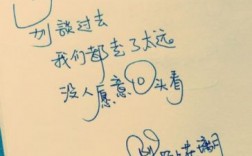 别談过去
我们都走了太远
没人愿意回头看